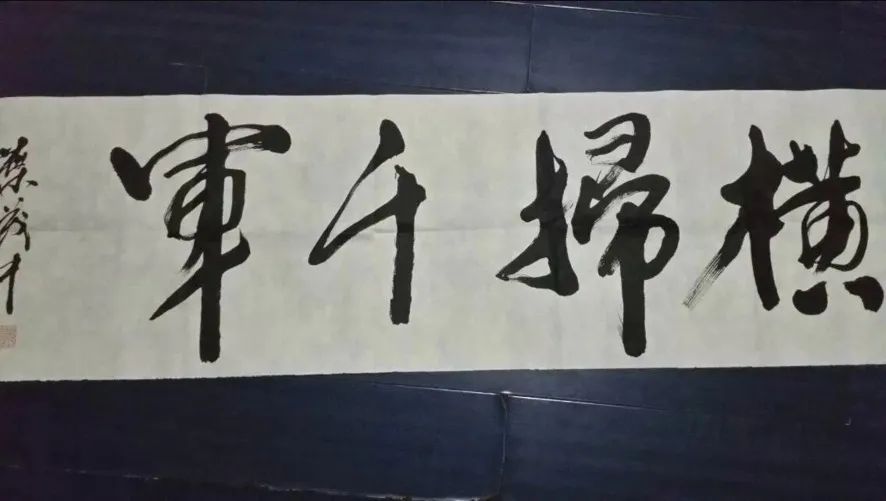 橫掃千軍